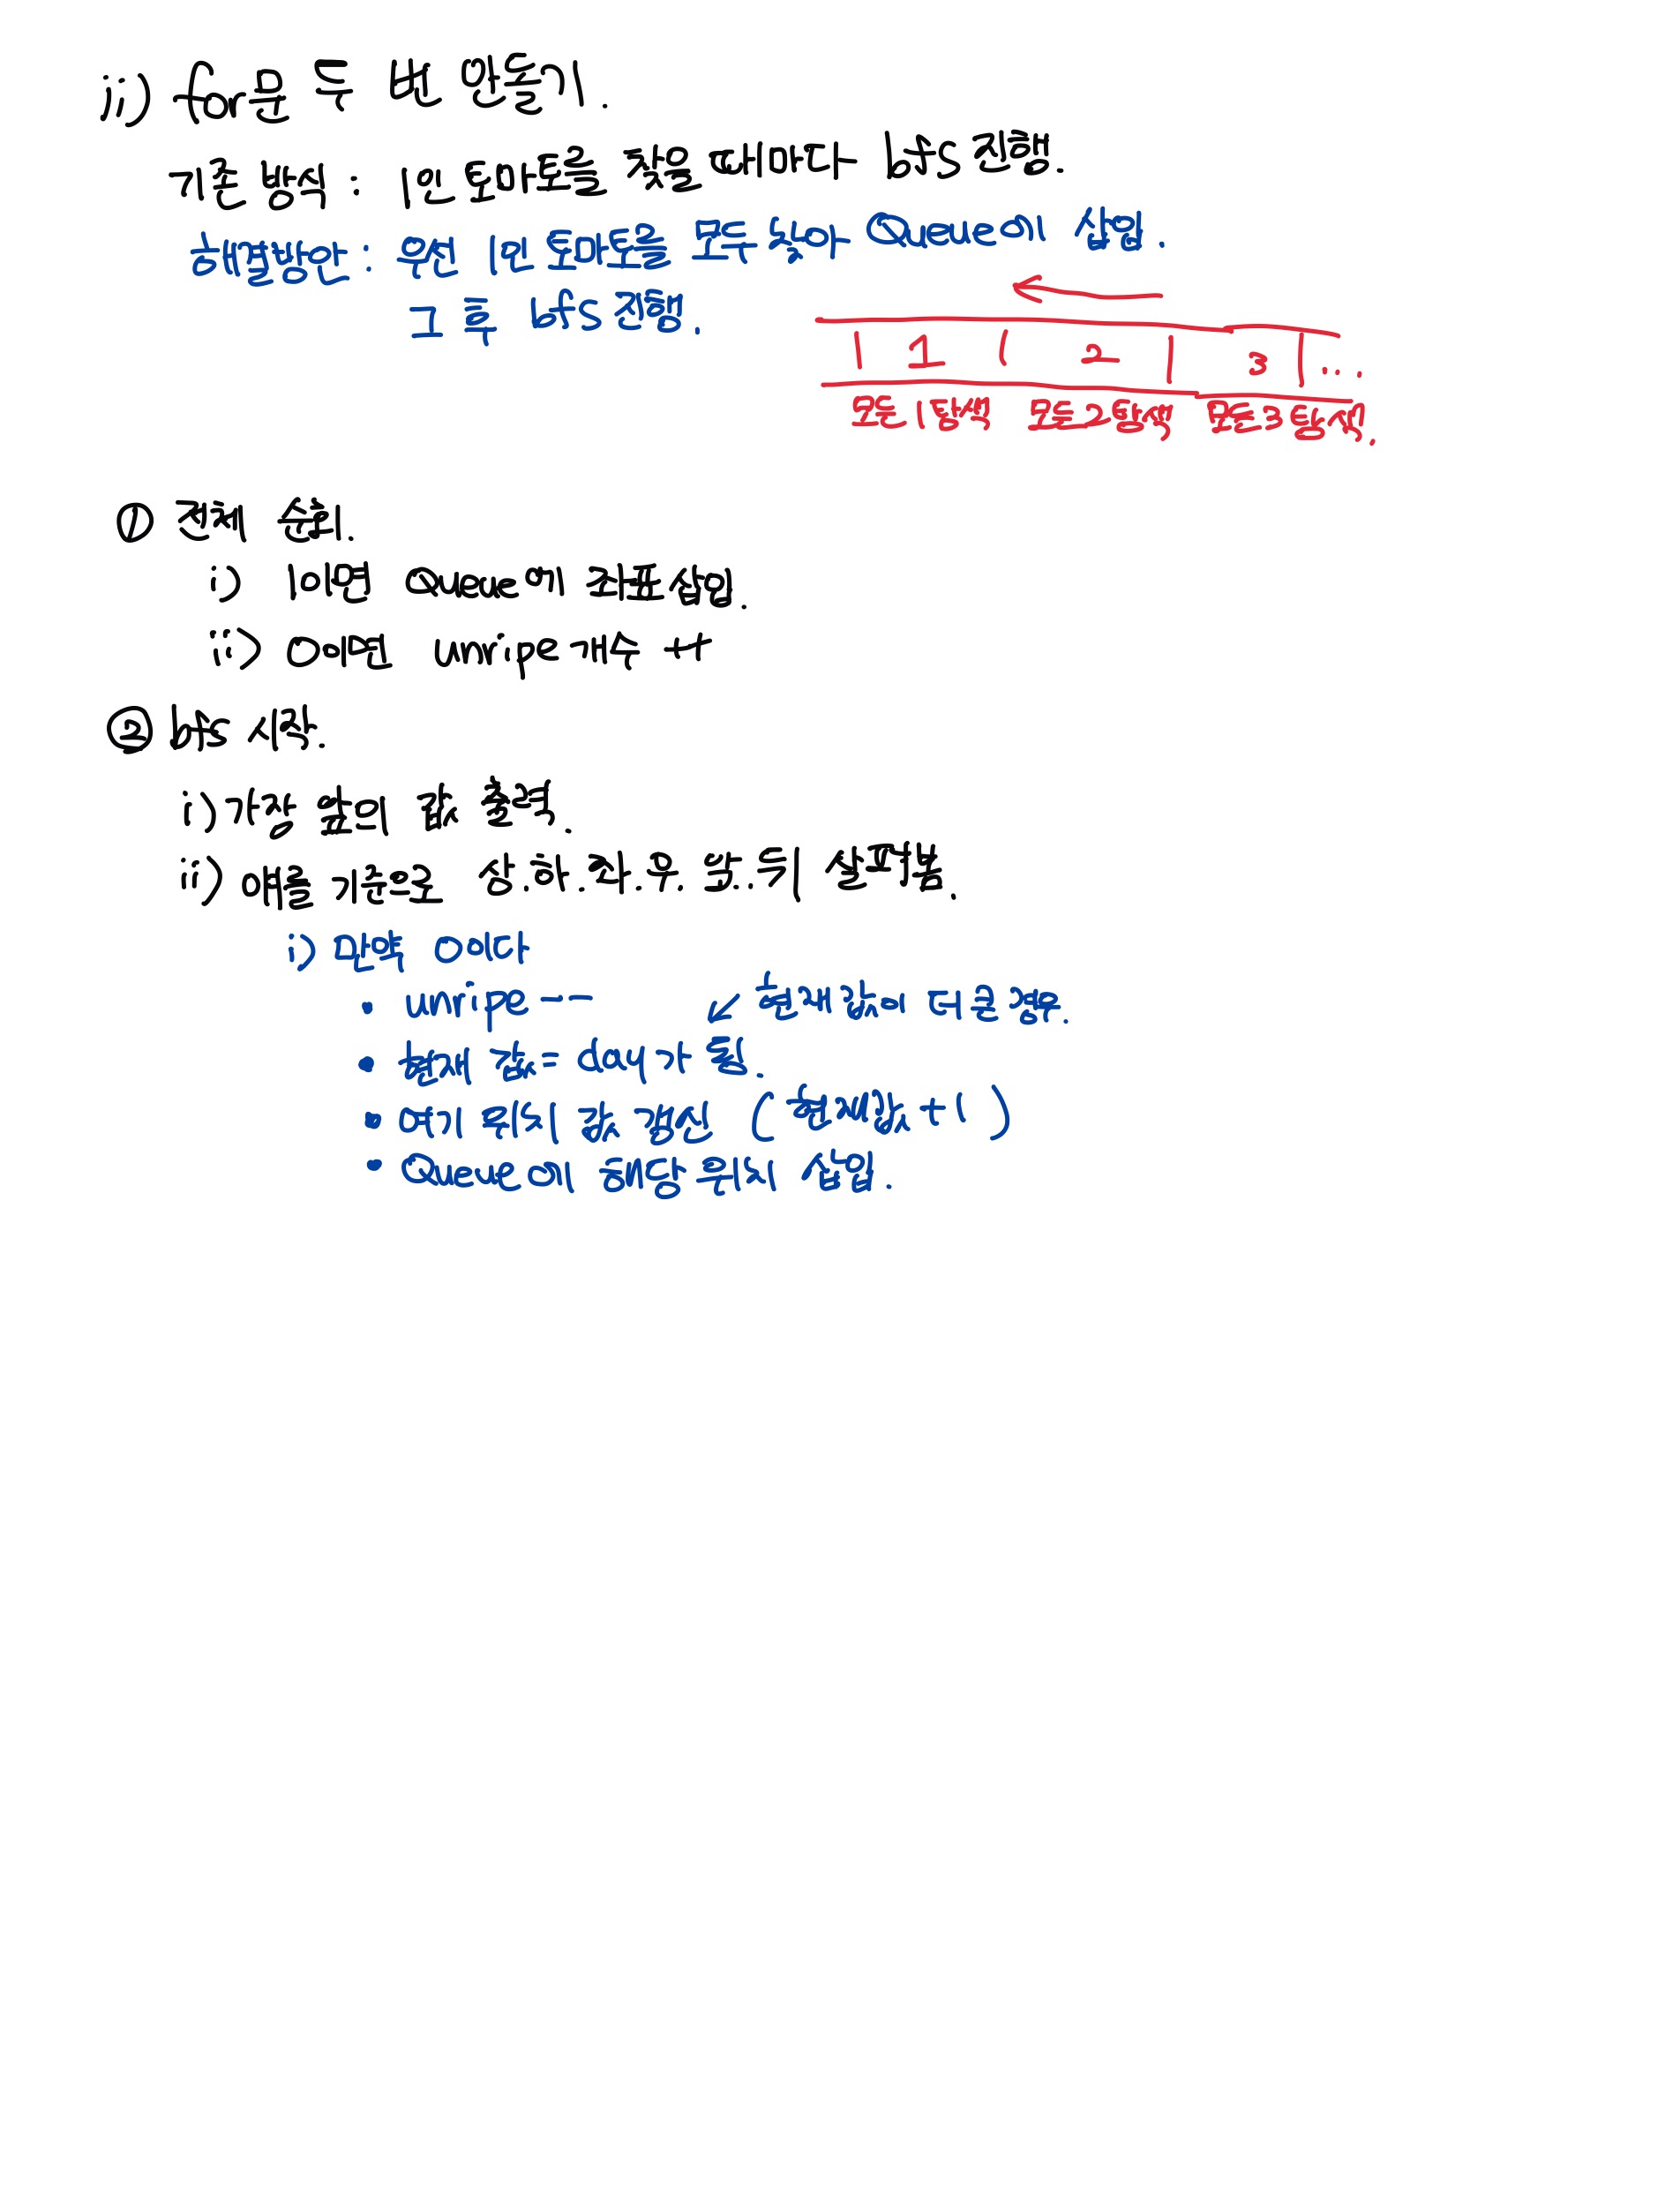 ii) for문 두 번 만들기.
기존 방식 : 1인 토마토를 찾을 때마다 bfs 진행.
해결방안 : 우선 1인 토마토를 모두 찾아 Queue에 삽입.
그 후 bfs 진행.
1 2 3 ...
모든 1 탐색 모든 2 탐색 모든 3 탐색.
① 전체 순회.
i) 1이면 Queue에 좌표 삽입.
ii) 0이면 unripe 개수 ++
② bfs 시작.
i) 가장 앞의 값 출력.
ii) 얘를 기준으로 상.하.좌.우.앞.뒤 살펴봄.
i) 만약 0이다
• unripe --
↙ 현재 값이 더 큰 경우.
• 현재 값 = day가 됨.
• 여기 위치 값 갱신 ( 현재값 +1 )
• Queue에 해당 위치 삽입.